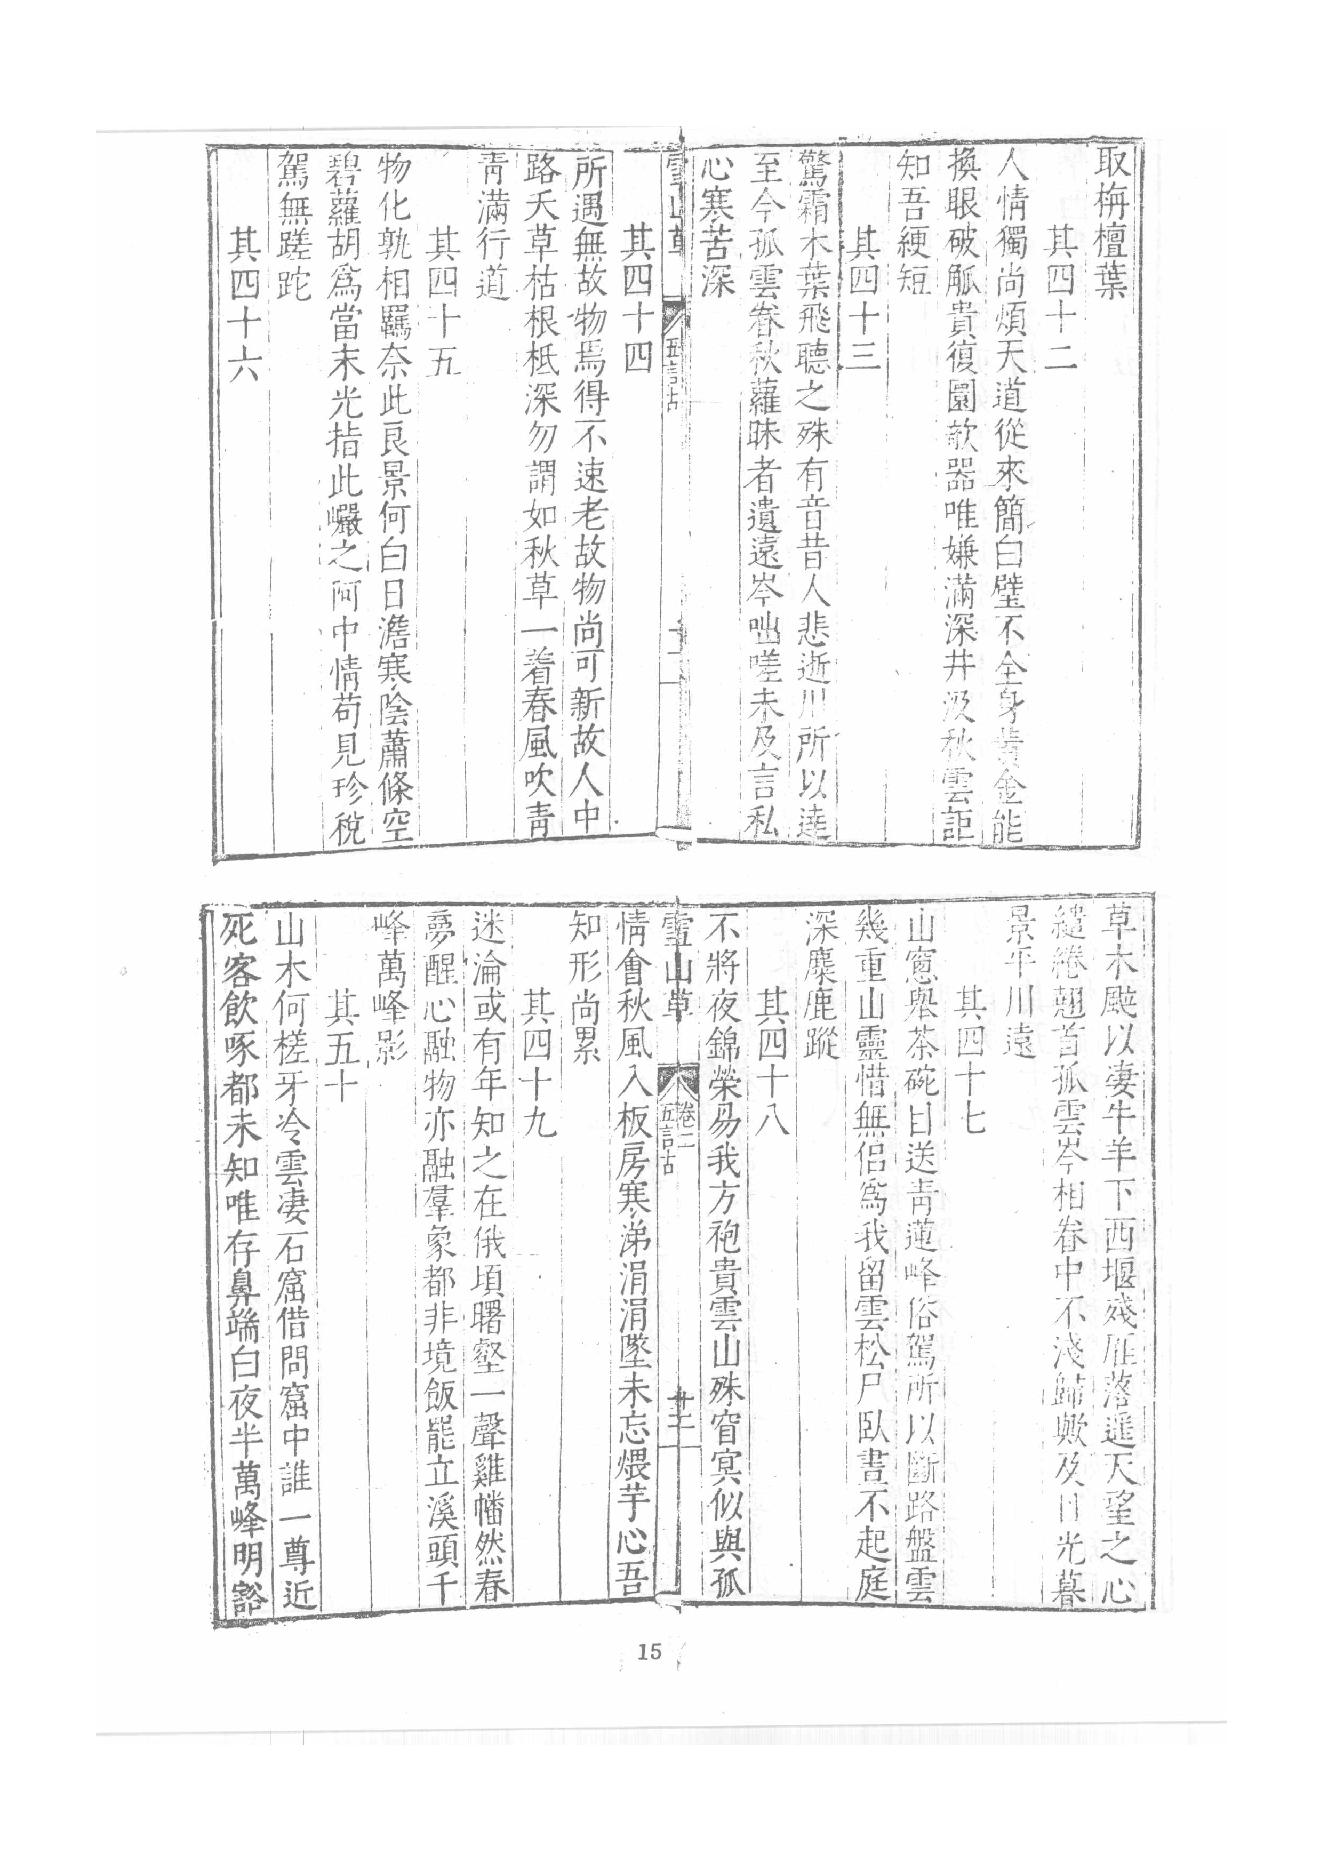 取栴檀葉
其四十二
人情獨尚煩天道從來簡白璧不全身黃金能
換眼破觚貴復圜欹器唯嫌滿深井汲秋雲詎
知吾綆短
其四十三
驚霜木葉飛聽之殊有音昔人悲逝川所以達
至今孤雲眷秋蘿眛者遺遠岑咄嗟未及言私
心寒苦深
雪山草
五言古
其四十四
所遇無故物焉得不速老故物尚可新故人中
路夭草枯根柢深勿謂如秋草一着春風吹青
青滿行道
其四十五
物化孰相羈奈此良景何白日澹寒陰蕭條空
碧蘿胡爲當末光指此巖之阿中情苟見珍稅
駕無蹉跎
其四十六
草木颭以凄牛羊下西堰殘雁落遥天望之心
繾綣翹首孤雲岑相眷中不淺歸歟及日光暮
景平川遠
其四十七
山窻與茶碗目送青蓮峰俗駕所以斷路盤雲
幾重山靈惜無侣爲我留雲松尸臥晝不起庭
深麋鹿蹤
其四十八
不將夜錦榮易我方袍貴雲山殊窅冥似與孤
雪山草
卷二
五言古
十二
情會秋風入板房寒涕涓涓墜未忘煨芋心吾
知形尚累
其四十九
迷淪或有年知之在俄頃曙壑一聲雞幡然春
夢醒心融物亦融羣象都非境飯罷立溪頭千
峰萬峰影
其五十
山木何槎牙冷雲凄石窟借問窟中誰一尊近
死客飲啄都未知唯存鼻端白夜半萬峰明豁
15